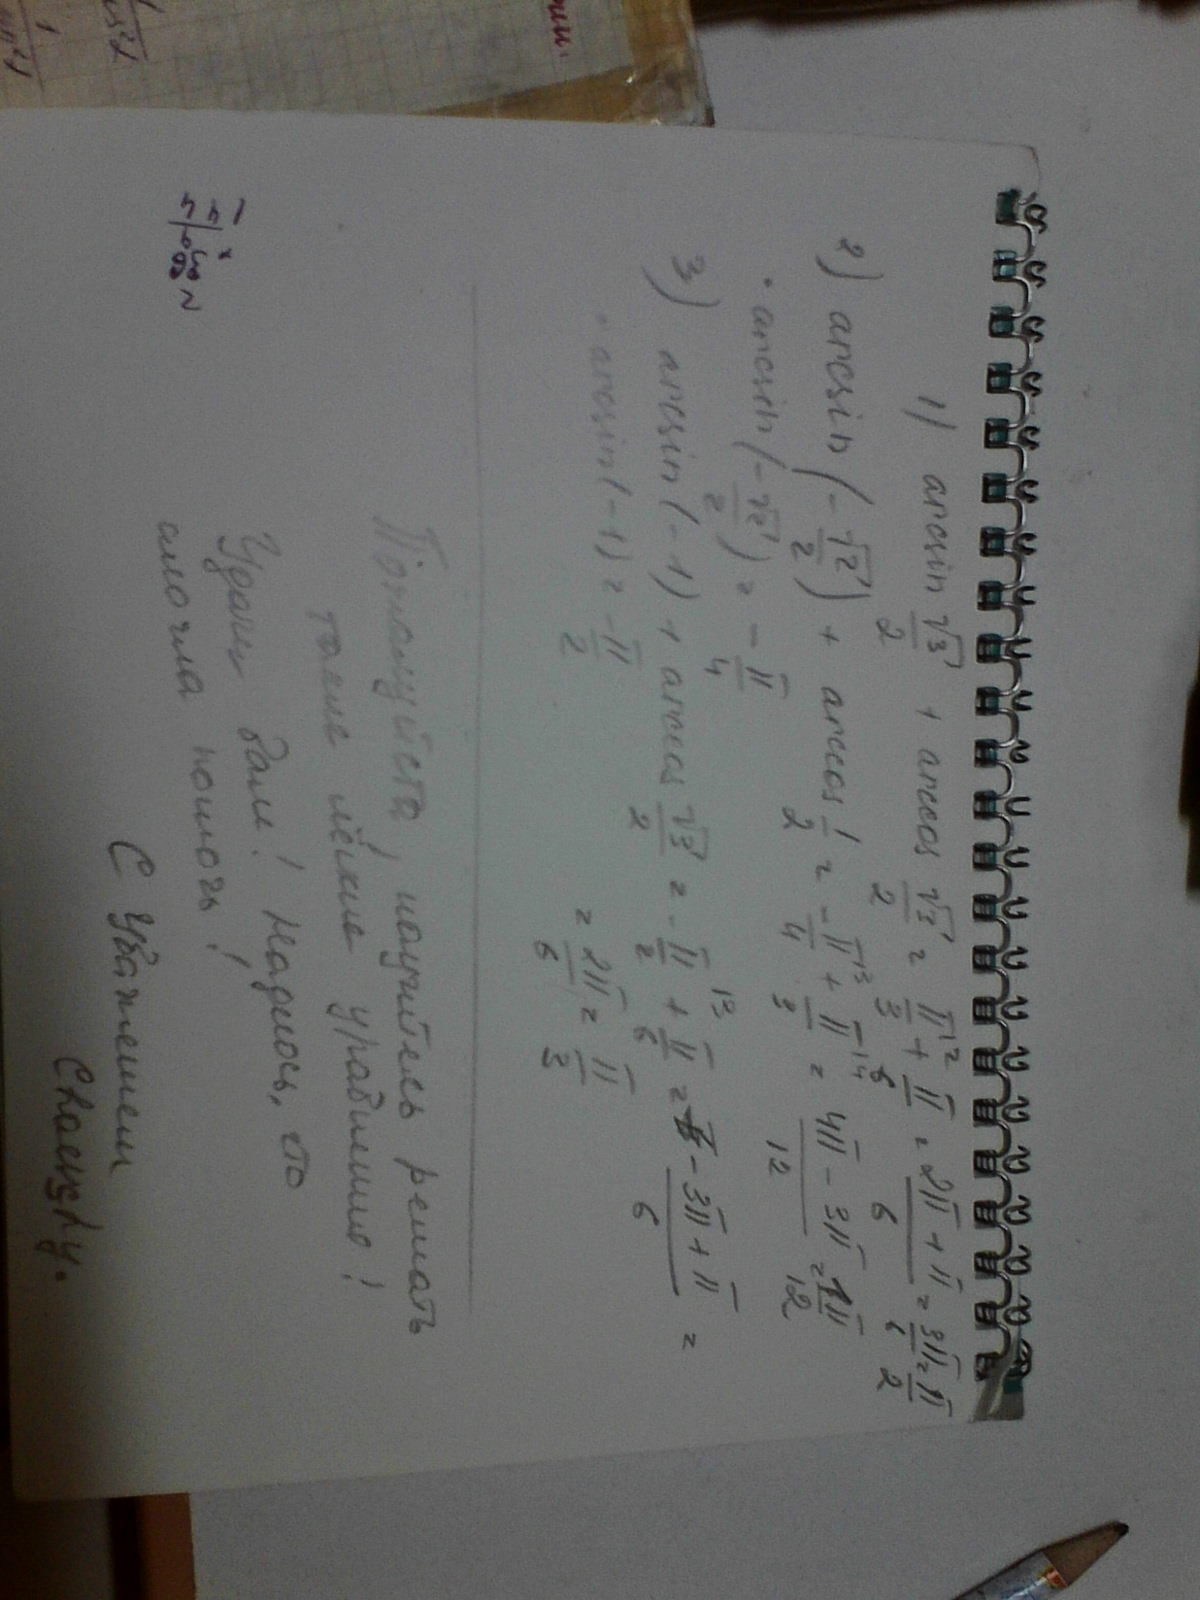 1) arcsin √3/2 + arccos √3/2 = π/3 + π/6 = 2π + π/6 = 3π/6 = π/2
2) arcsin (-√2/2) + arccos 1/2 = -π/4 + π/3 = 4π - 3π/12 = 1π/12
• arcsin (-√2/2) = -π/4
3) arcsin (-1) + arccos √3/2 = -π/2 + π/6 = -3π + π/6 =
• arcsin (-1) = -π/2
= 2π/6 = π/3
Пожалуйста, научитесь решать
такие лёгкие уравнения!
Удачи Вам! Надеюсь, что
смогла помочь!
С Уважением